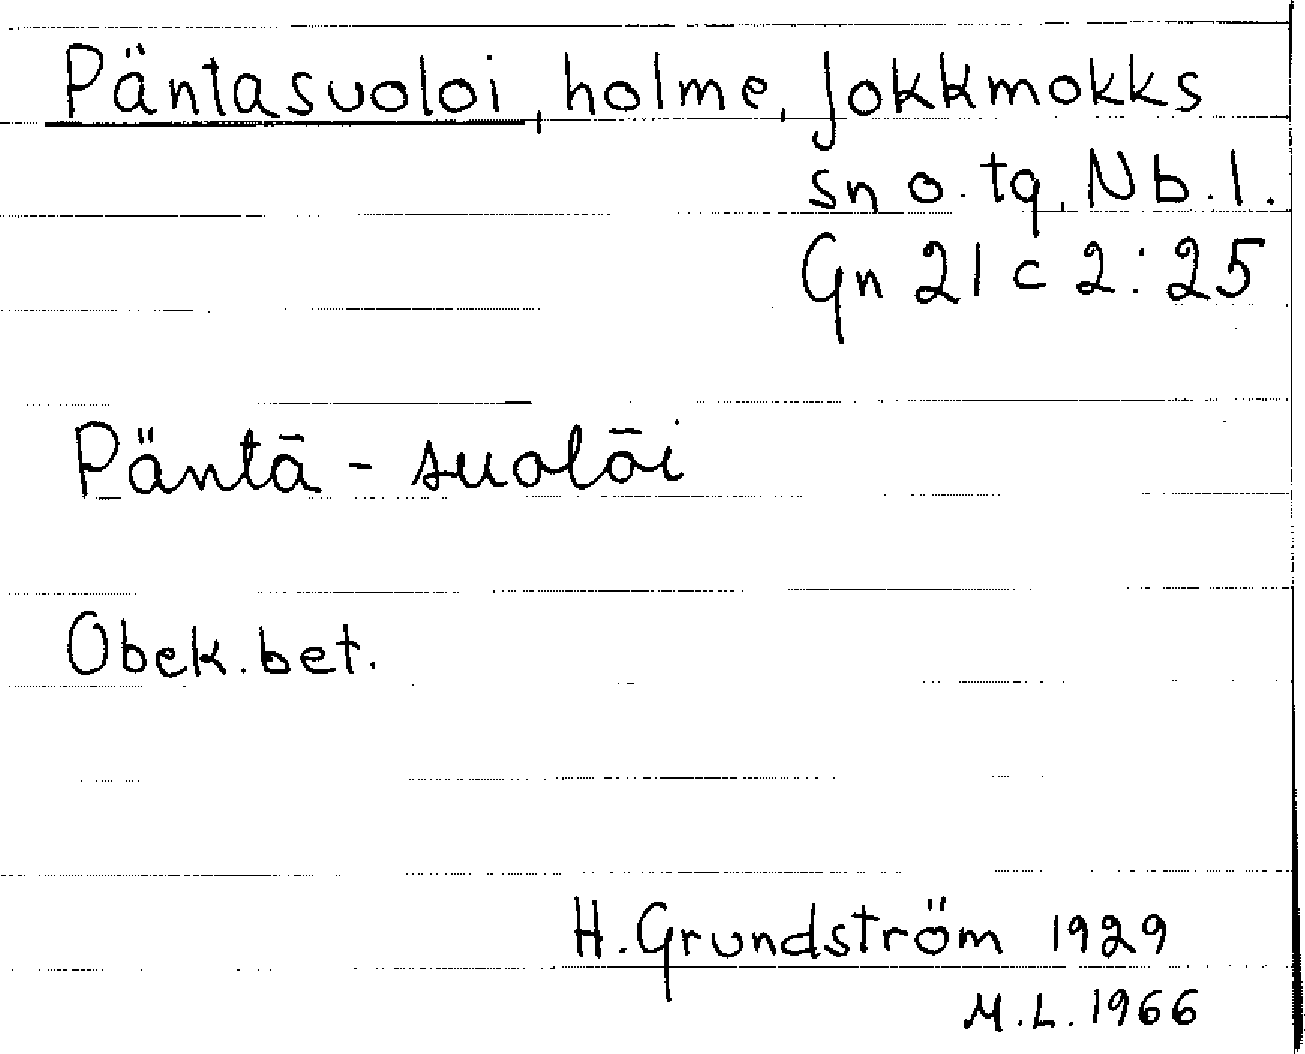 Päntasuoloi, holme, Jokkmokks
sn o. tg, Nb. l.
Gn 21 c 2:25
Päntā - suolōi
Obek. bet.
H. Grundström 1929
M.L. 1966